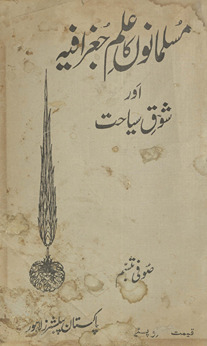 مسلمانوں کا علم جغرافیہ
اور
شوق سیاحت
صوفی تبسم
پاکستان پبلشرز لاہور
قیمت روپے